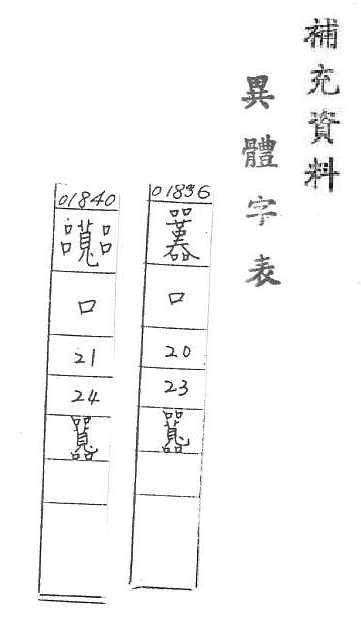 補充資料
異體字表
01836
口
20
23
01840
口
21
24